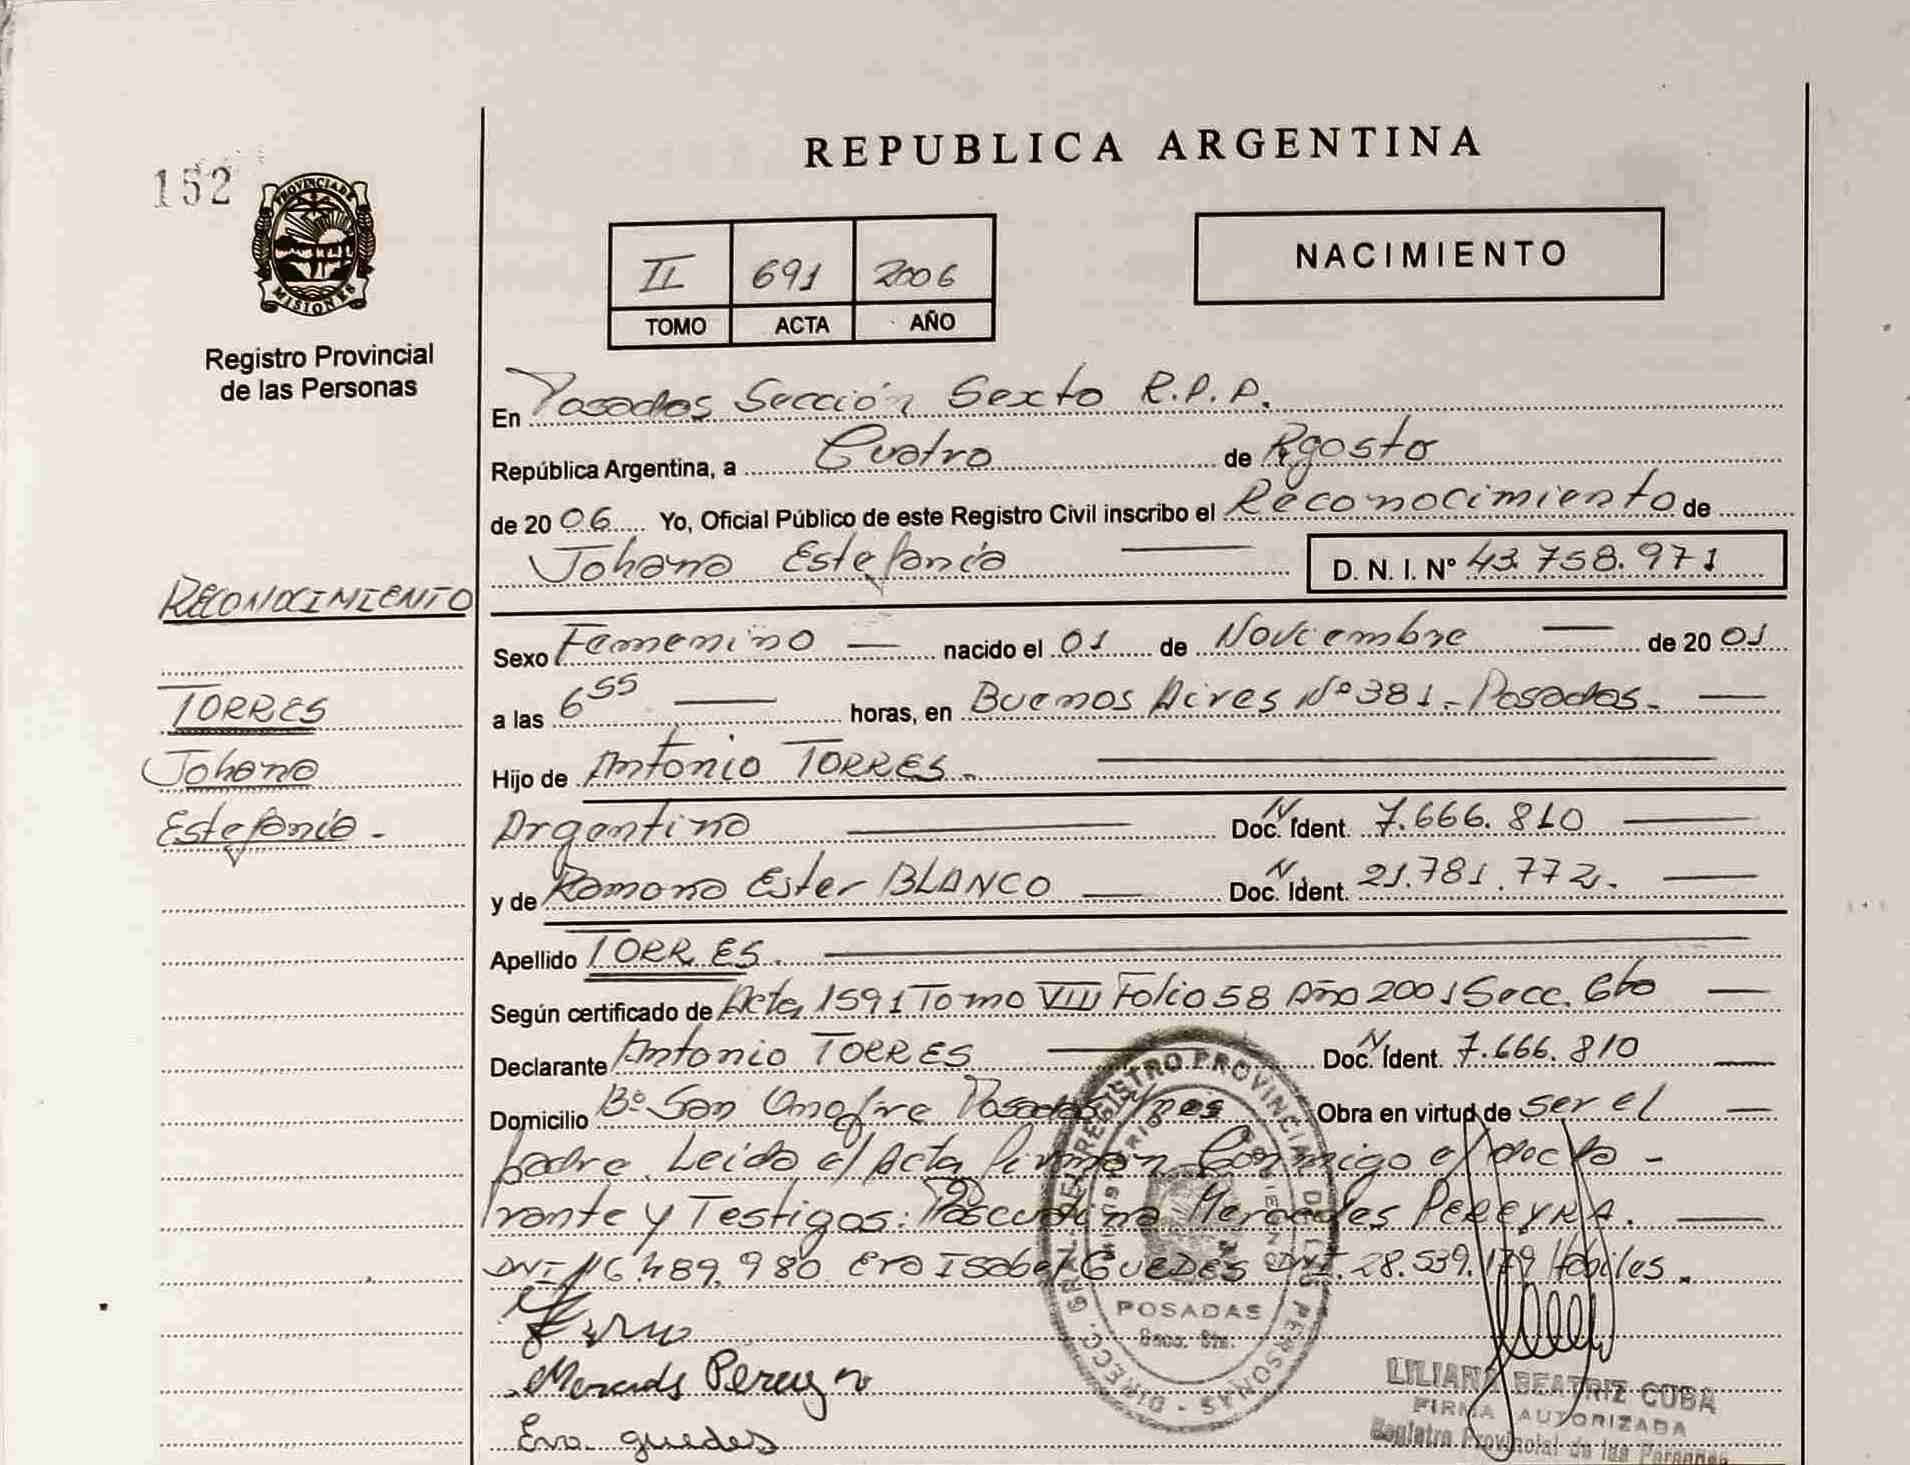 152
PROVINCIA DE
MISIONES
Registro Provincial
de las Personas
REPUBLICA ARGENTINA
II 691 2006
TOMO ACTA AÑO
NACIMIENTO
En Posadas Sección Sexta R.P.P.
República Argentina, a Cuatro de Agosto
de 2006 Yo, Oficial Público de este Registro Civil inscribo el Reconocimiento de
Johana Estefanía D. N. I. N° 43.758.971
RECONOCIMIENTO
Sexo Femenino nacido el 01 de Noviembre de 2001
TORRES
a las 6 55 horas, en Buenos Aires Nº 381 - Posadas.
Johana
Hijo de Antonio TORRES.
Estefanía -
Argentino Doc. Ident. N 7.666.810
y de Ramona Ester BLANCO Doc. Ident. N 21.781.772.
Apellido TORRES.
Según certificado de Acta 1591 Tomo VIII Folio 58 Año 2001 Secc. 6ta
Declarante Antonio TORRES Doc. Ident. N 7.666.810
Domicilio Bº San Onofre Posadas Mnes Obra en virtud de ser el
padre. Leída el Acta firman Conmigo el decla-
rante y Testigos: Pascualina Mercedes PEREYRA.
DNI 16.489.980 Eva Isabel GUEDES DNI. 28.539.179 Hábiles.
Mercedes Pereyra
Eva guedes
DIRECC. GRAL. DEL REGISTRO PROVINCIAL DE LAS PERSONAS
MINISTERIO DE GOBIERNO
POSADAS
Secc. 6ta.
LILIANA BEATRIZ CUBA
FIRMA AUTORIZADA
Registro Provincial de las Personas